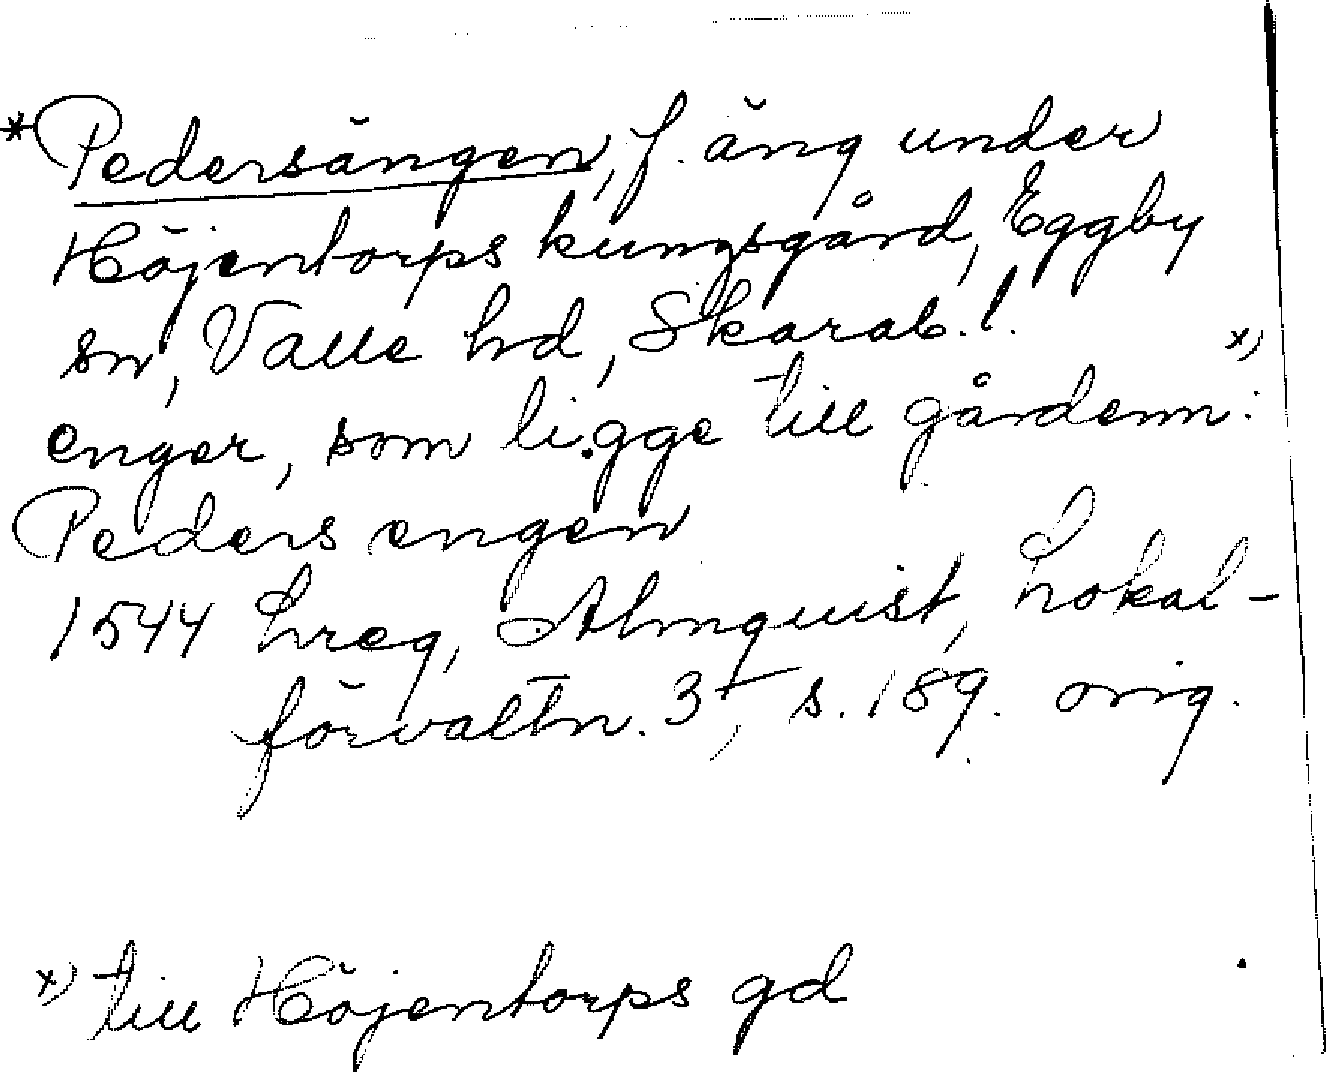 *Pedersängen, f. äng under
Höjentorps kungsgård, Eggby
sn, Valle hd, Skarab. l.
enger, som ligge till gårdenn x):
Peders engen
1544 Lreg, Almquist, Lokal-
förvaltn. 3, s. 189. orig.
x) till Höjentorps gd